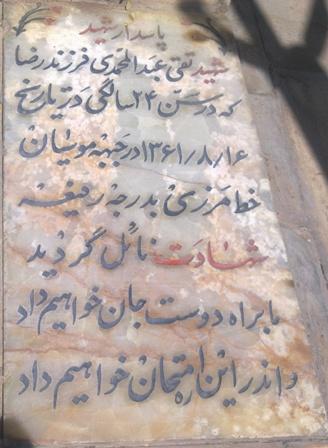 پاسدار شهید
شهید تقی عبدالمحمدی فرزند رضا
که در سن ۲۴ سالگی در تاریخ
۱۳۶۱/۸/۱۶ در جبهه موسیان
خط مرزی بدرجه رفیعه
شهادت نائل گردید
ما براه دوست جان خواهیم داد
واندر این ره امتحان خواهیم داد